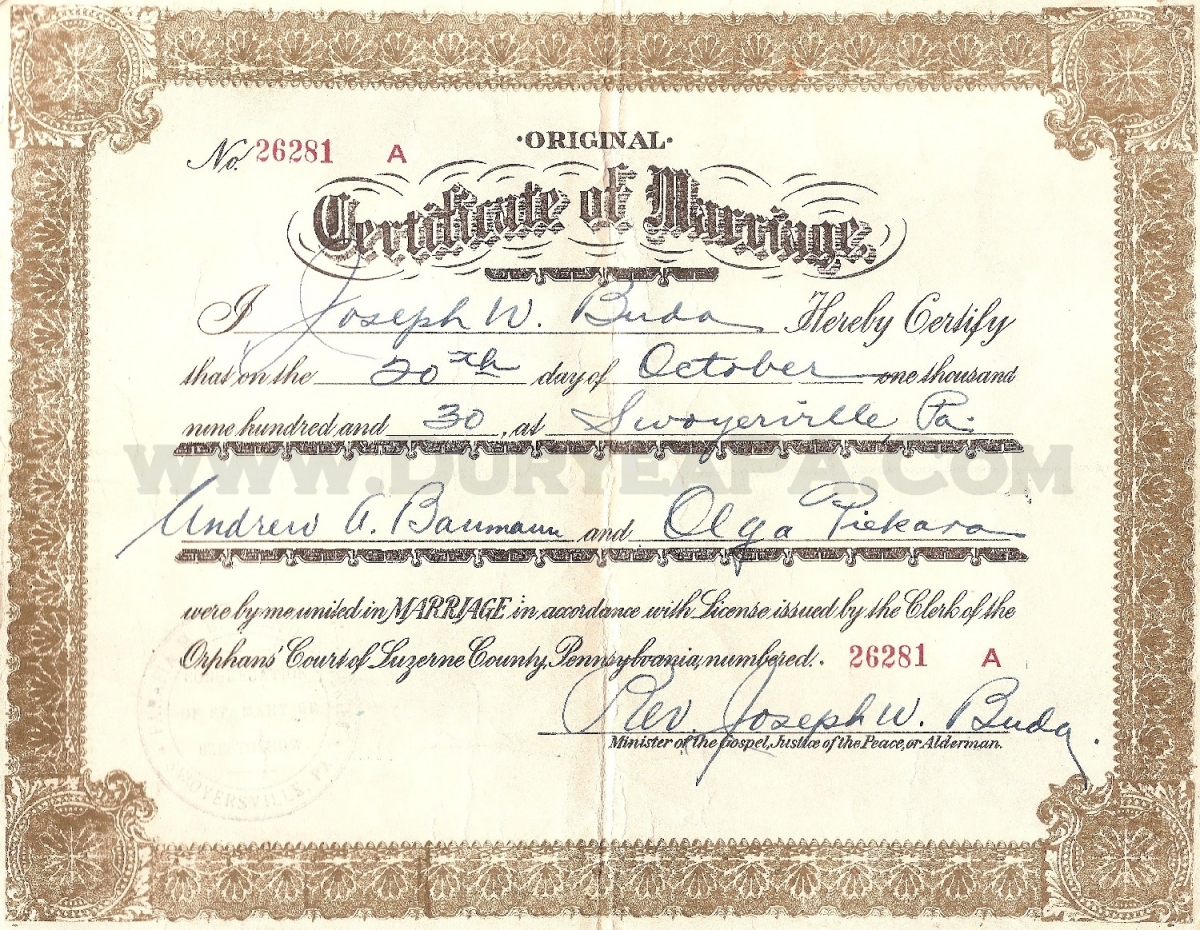 ·ORIGINAL·
No. 26281 A
Certificate of Marriage.
I Joseph W. Buda Hereby Certify
that on the 20th day of October one thousand
nine hundred and 30, at Swoyerville, Pa.
WWW.DURYEAPA.COM
Andrew A. Baumann and Olga Piekara
were by me united in MARRIAGE in accordance with License issued by the Clerk of the
Orphans' Court of Luzerne County, Pennsylvania, numbered. 26281 A
Rev. Joseph W. Buda.
Minister of the Gospel, Justice of the Peace, or Alderman.
OF ST. MARY OF
SWOYERSVILLE, PA